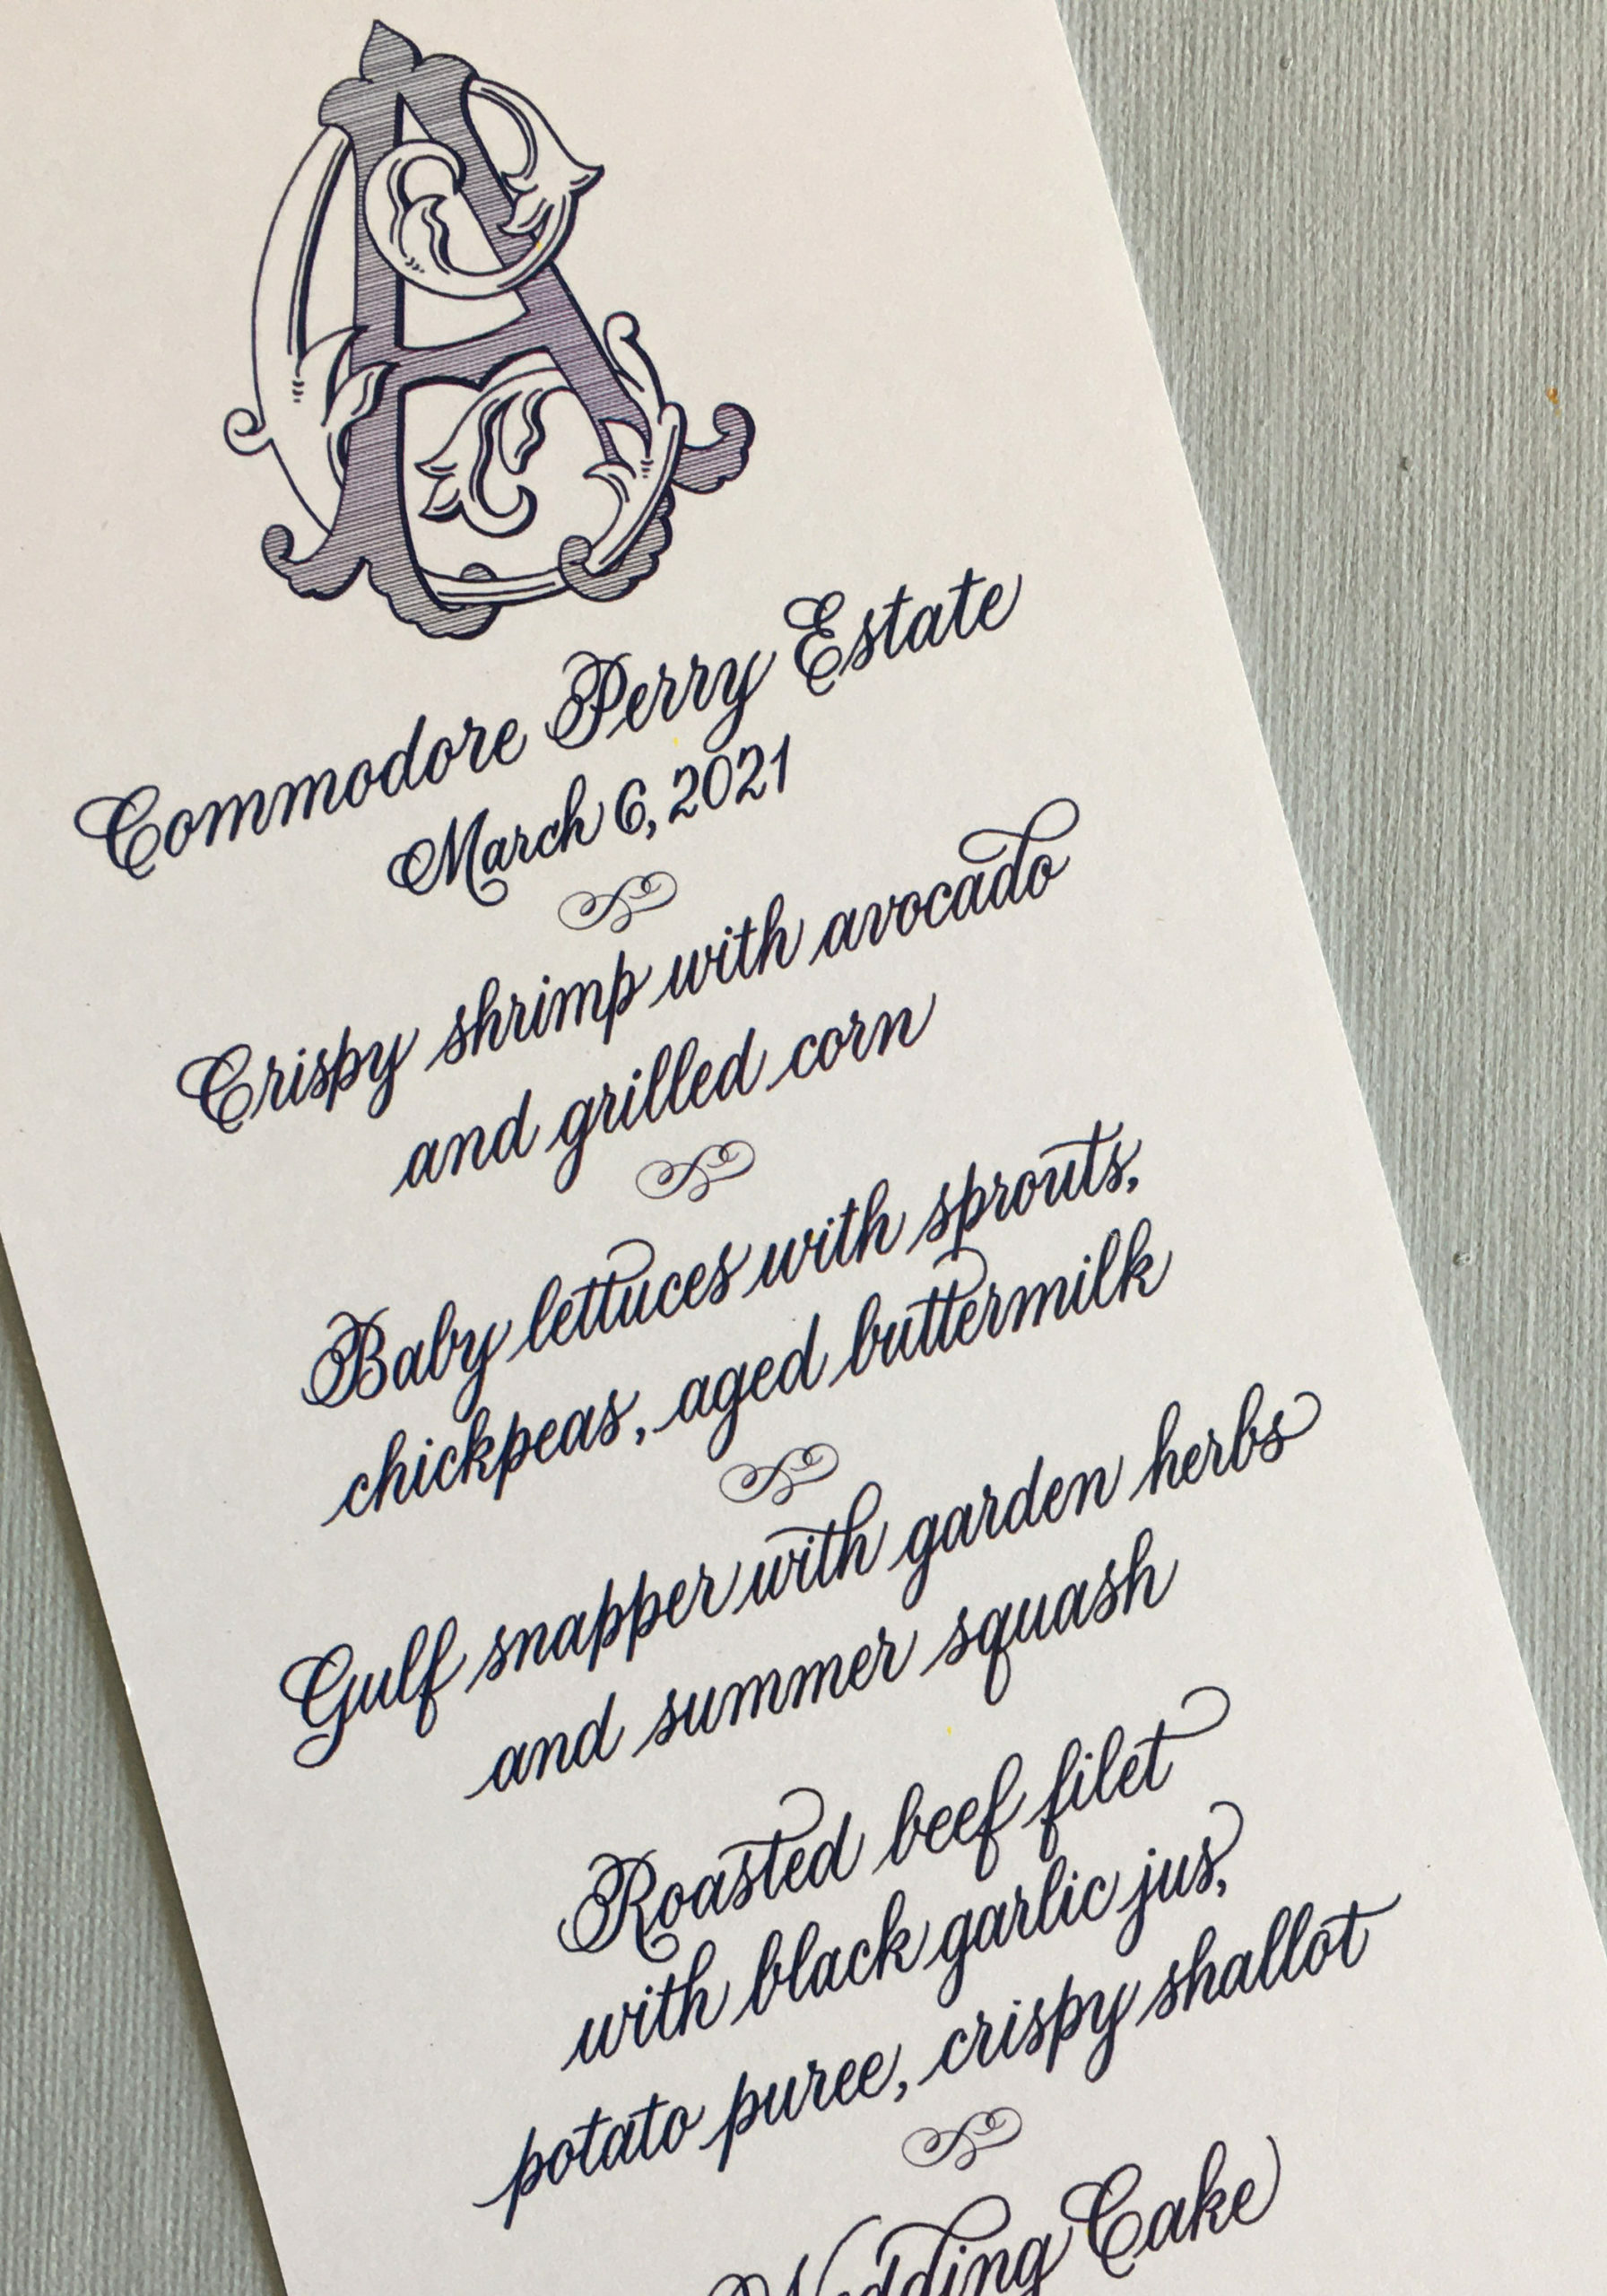 Commodore Perry Estate
March 6, 2021
Crispy shrimp with avocado
and grilled corn
Baby lettuces with sprouts,
chickpeas, aged buttermilk
Gulf snapper with garden herbs
and summer squash
Roasted beef filet
with black garlic jus,
potato puree, crispy shallot
Wedding Cake